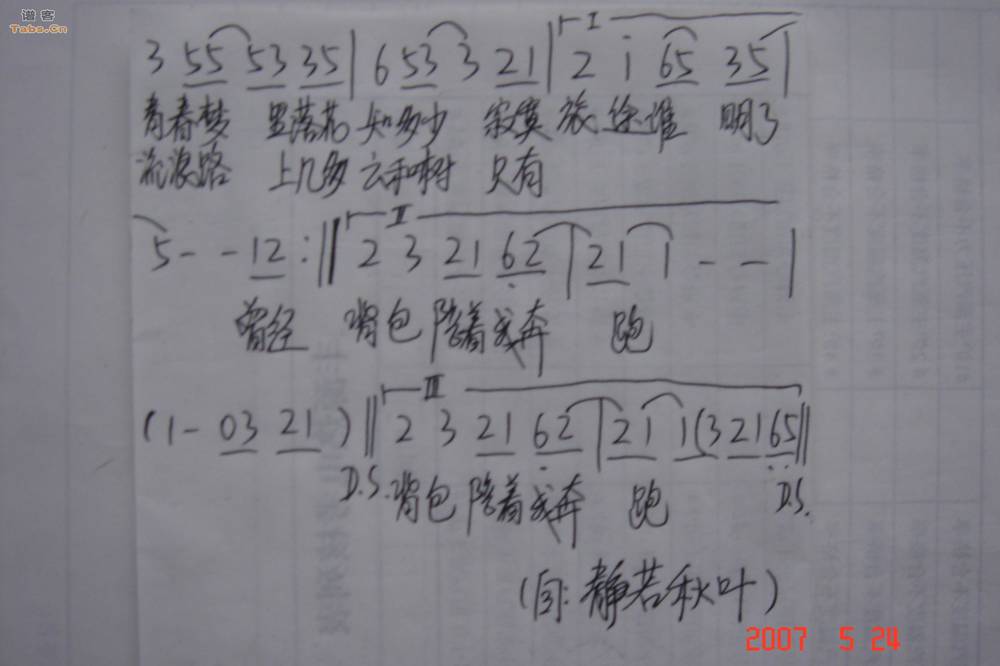 谱客
Tabs.Cn
3 55 53 35 | 6 53 3 21 | I 2 i 65 35 |
青春梦 里落花 知多少 寂寞 旅途谁 明了
流浪路 上几多 云和树 只有
5 - - 12 :|| II 2 3 21 62 | 21 1 - - |
曾经 背包 陪着我奔 跑
(1 - 03 21) || III 2 3 21 62 | 21 1 (3 21 65 ||
D.S. 背包 陪着我奔 跑 D.S.
(自:静若秋叶)
2007 5 24